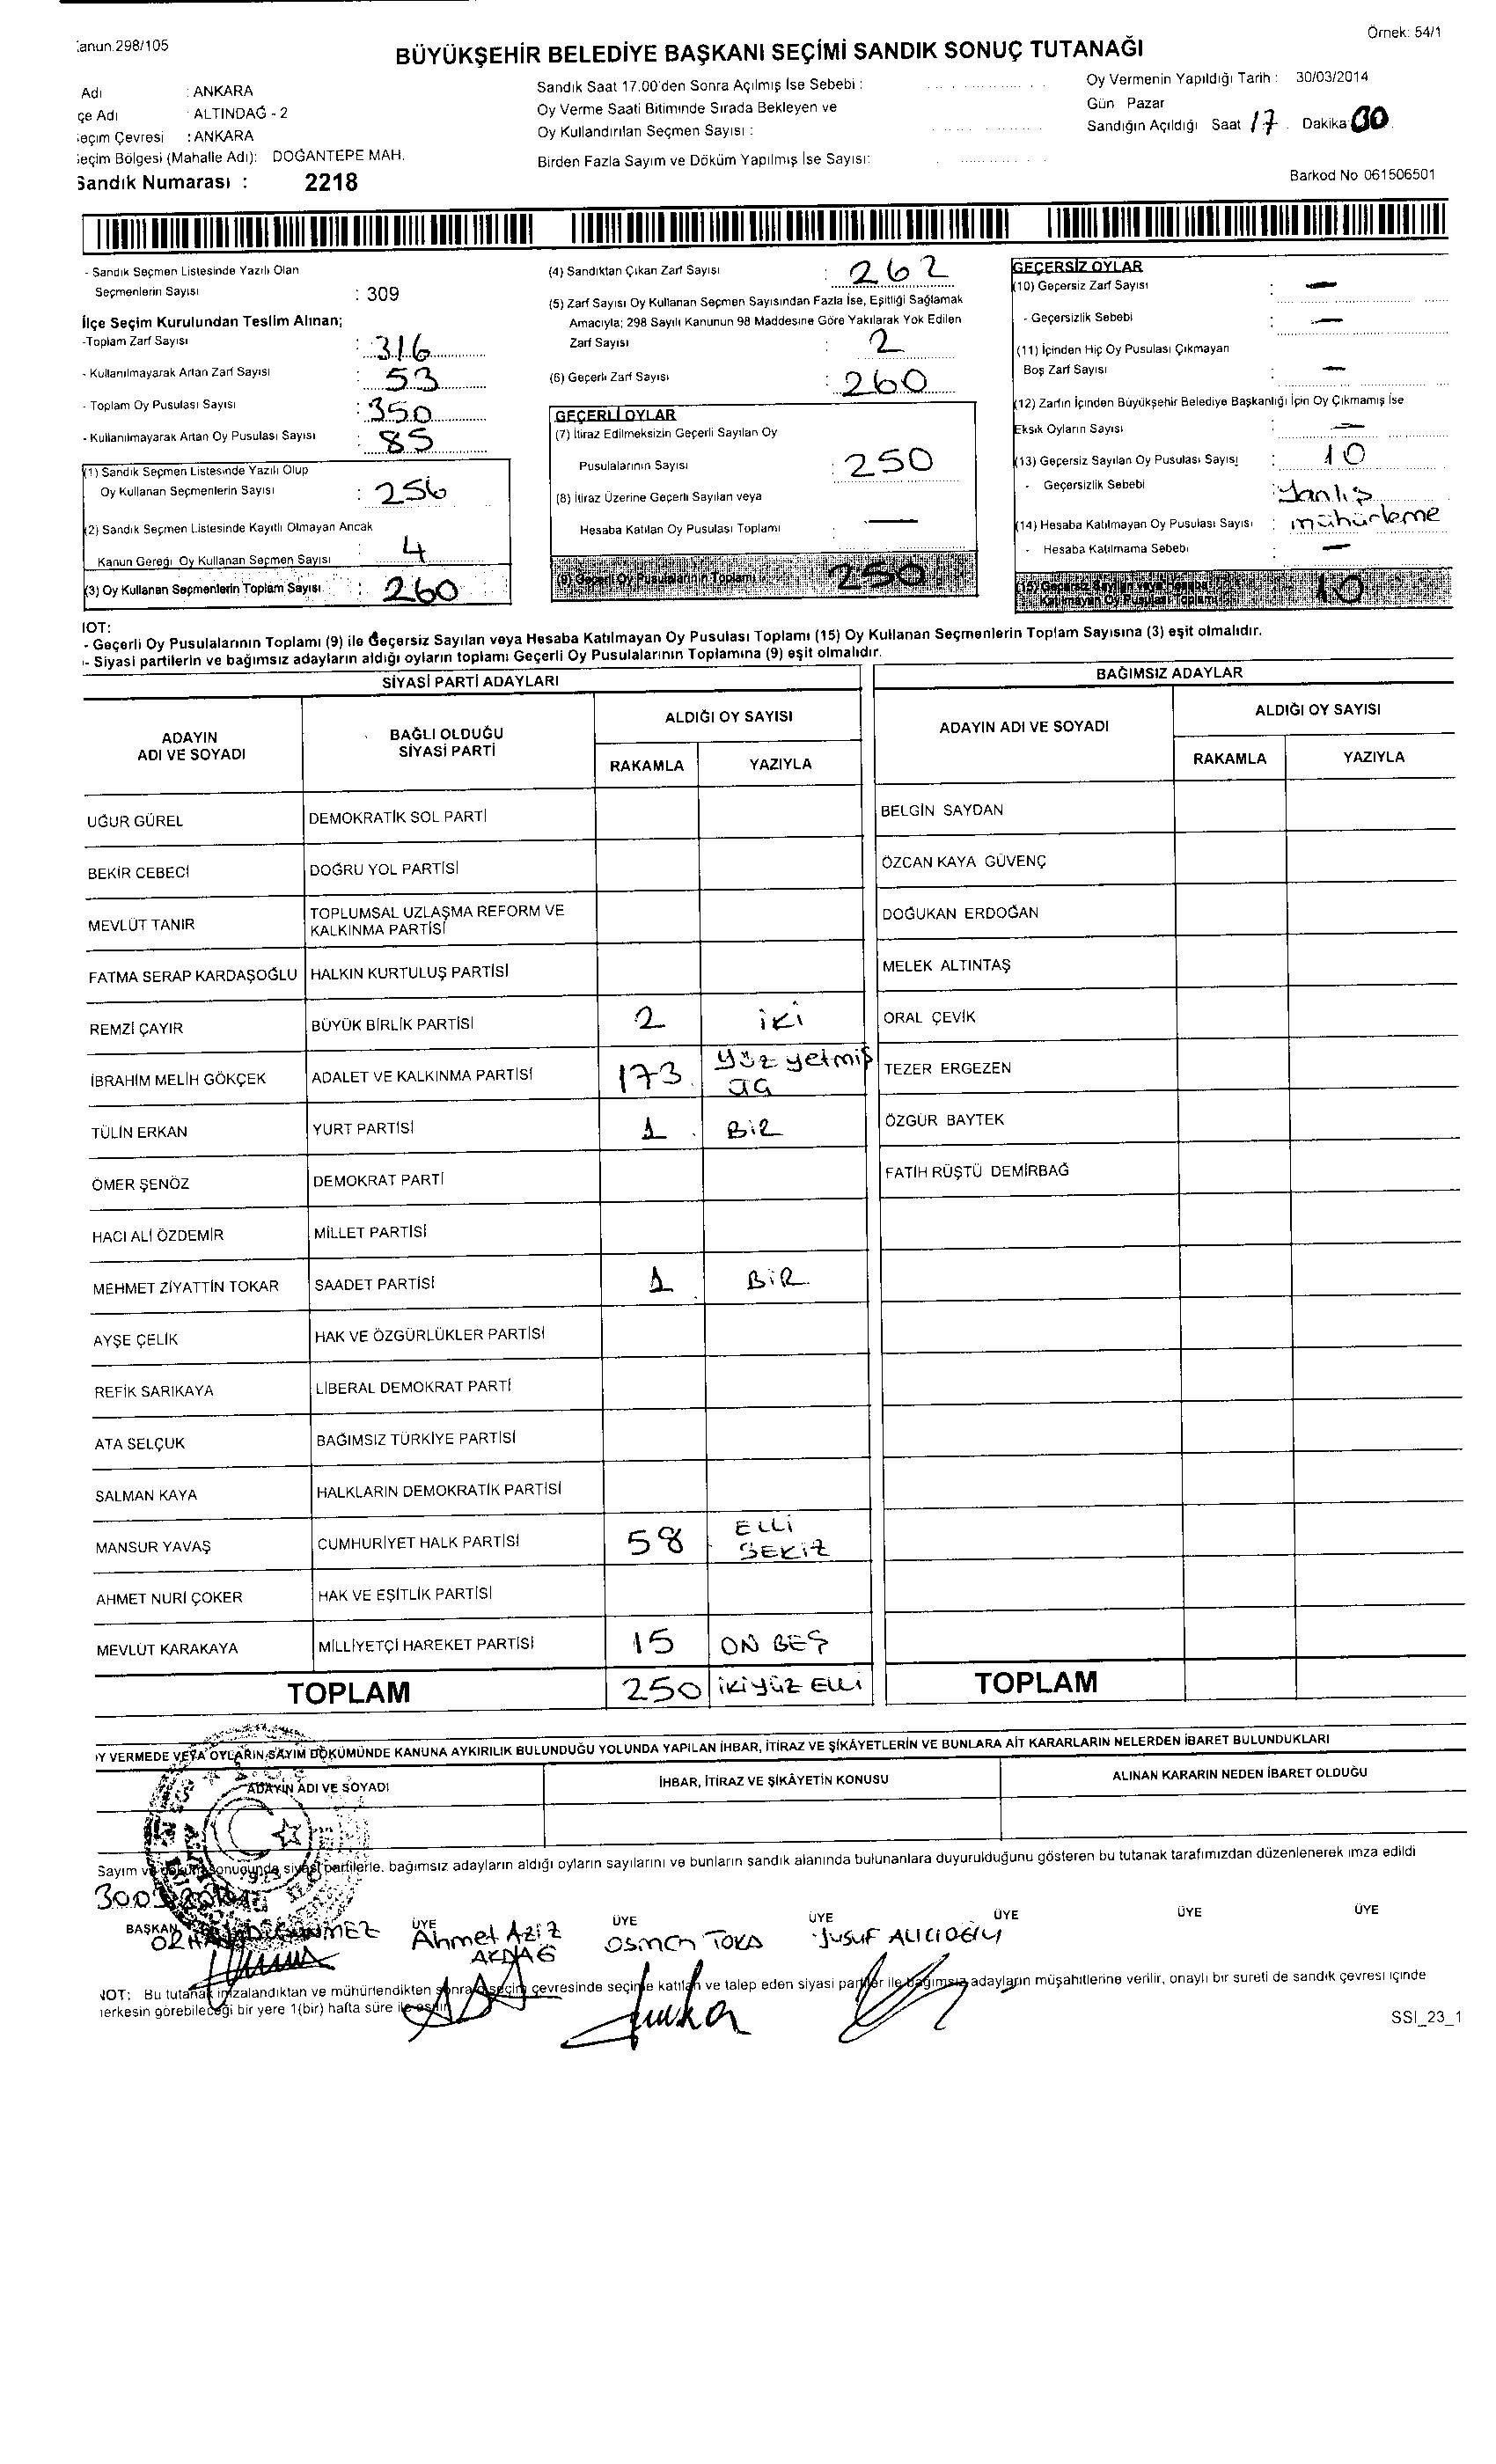 Örnek: 54/1
anun.298/105
BÜYÜKŞEHİR BELEDİYE BAŞKANI SEÇİMİ SANDIK SONUÇ TUTANAĞI
Adı : ANKARA
çe Adı : ALTINDAĞ - 2
eçim Çevresi : ANKARA
eçim Bölgesi (Mahalle Adı): DOĞANTEPE MAH.
Sandık Numarası : 2218
Sandık Saat 17.00'den Sonra Açılmış İse Sebebi :
Oy Verme Saati Bitiminde Sırada Bekleyen ve
Oy Kullandırılan Seçmen Sayısı :
Birden Fazla Sayım ve Döküm Yapılmış İse Sayısı:
Oy Vermenin Yapıldığı Tarih : 30/03/2014
Gün Pazar
Sandığın Açıldığı Saat 17 . Dakika 00
Barkod No 061506501
- Sandık Seçmen Listesinde Yazılı Olan
Seçmenlerin Sayısı : 309
İlçe Seçim Kurulundan Teslim Alınan;
-Toplam Zarf Sayısı : 316
- Kullanılmayarak Artan Zarf Sayısı : 53
- Toplam Oy Pusulası Sayısı : 350
- Kullanılmayarak Artan Oy Pusulası Sayısı : 85
(1) Sandık Seçmen Listesinde Yazılı Olup
Oy Kullanan Seçmenlerin Sayısı : 256
(2) Sandık Seçmen Listesinde Kayıtlı Olmayan Ancak
Kanun Gereği Oy Kullanan Seçmen Sayısı : 4
(3) Oy Kullanan Seçmenlerin Toplam Sayısı : 260
(4) Sandıktan Çıkan Zarf Sayısı : 262
(5) Zarf Sayısı Oy Kullanan Seçmen Sayısından Fazla İse, Eşitliği Sağlamak
Amacıyla; 298 Sayılı Kanunun 98 Maddesine Göre Yakılarak Yok Edilen
Zarf Sayısı : 2
(6) Geçerli Zarf Sayısı : 260
GEÇERLİ OYLAR
(7) İtiraz Edilmeksizin Geçerli Sayılan Oy
Pusulalarının Sayısı : 250
(8) İtiraz Üzerine Geçerli Sayılan veya
Hesaba Katılan Oy Pusulası Toplamı : —
(9) Geçerli Oy Pusulalarının Toplamı : 250
GEÇERSİZ OYLAR
(10) Geçersiz Zarf Sayısı : —
- Geçersizlik Sebebi : —
(11) İçinden Hiç Oy Pusulası Çıkmayan
Boş Zarf Sayısı : —
(12) Zarfın İçinden Büyükşehir Belediye Başkanlığı İçin Oy Çıkmamış İse
Eksik Oyların Sayısı : —
(13) Geçersiz Sayılan Oy Pusulası Sayısı : 10
- Geçersizlik Sebebi : Yanlış
mühürleme
(14) Hesaba Katılmayan Oy Pusulası Sayısı :
- Hesaba Katılmama Sebebi : —
(15) Geçersiz Sayılan veya Hesaba
Katılmayan Oy Pusulası Toplamı 10
IOT:
- Geçerli Oy Pusulalarının Toplamı (9) ile Geçersiz Sayılan veya Hesaba Katılmayan Oy Pusulası Toplamı (15) Oy Kullanan Seçmenlerin Toplam Sayısına (3) eşit olmalıdır.
- Siyasi partilerin ve bağımsız adayların aldığı oyların toplamı Geçerli Oy Pusulalarının Toplamına (9) eşit olmalıdır.
SİYASİ PARTİ ADAYLARI
ADAYIN
ADI VE SOYADI
BAĞLI OLDUĞU
SİYASİ PARTİ
ALDIĞI OY SAYISI
RAKAMLA YAZIYLA
UĞUR GÜREL DEMOKRATİK SOL PARTİ
BEKİR CEBECİ DOĞRU YOL PARTİSİ
MEVLÜT TANIR TOPLUMSAL UZLAŞMA REFORM VE
KALKINMA PARTİSİ
FATMA SERAP KARDAŞOĞLU HALKIN KURTULUŞ PARTİSİ
REMZİ ÇAYIR BÜYÜK BİRLİK PARTİSİ 2 iKi
İBRAHİM MELİH GÖKÇEK ADALET VE KALKINMA PARTİSİ 173 yüz yetmiş
üç
TÜLİN ERKAN YURT PARTİSİ 1 BiR
ÖMER ŞENÖZ DEMOKRAT PARTİ
HACI ALİ ÖZDEMİR MİLLET PARTİSİ
MEHMET ZİYATTİN TOKAR SAADET PARTİSİ 1 BiR
AYŞE ÇELİK HAK VE ÖZGÜRLÜKLER PARTİSİ
REFİK SARIKAYA LİBERAL DEMOKRAT PARTİ
ATA SELÇUK BAĞIMSIZ TÜRKİYE PARTİSİ
SALMAN KAYA HALKLARIN DEMOKRATİK PARTİSİ
MANSUR YAVAŞ CUMHURİYET HALK PARTİSİ 58 ELLi
SEKiZ
AHMET NURİ ÇOKER HAK VE EŞİTLİK PARTİSİ
MEVLÜT KARAKAYA MİLLİYETÇİ HAREKET PARTİSİ 15 ON BEŞ
TOPLAM 250 iKiyüz ELLi
BAĞIMSIZ ADAYLAR
ADAYIN ADI VE SOYADI
ALDIĞI OY SAYISI
RAKAMLA YAZIYLA
BELGİN SAYDAN
ÖZCAN KAYA GÜVENÇ
DOĞUKAN ERDOĞAN
MELEK ALTINTAŞ
ORAL ÇEVİK
TEZER ERGEZEN
ÖZGÜR BAYTEK
FATİH RÜŞTÜ DEMİRBAĞ
TOPLAM
Y VERMEDE VEYA OYLARIN SAYIM DÖKÜMÜNDE KANUNA AYKIRILIK BULUNDUĞU YOLUNDA YAPILAN İHBAR, İTİRAZ VE ŞİKÂYETLERİN VE BUNLARA AİT KARARLARIN NELERDEN İBARET BULUNDUKLARI
ADAYIN ADI VE SOYADI İHBAR, İTİRAZ VE ŞİKÂYETİN KONUSU ALINAN KARARIN NEDEN İBARET OLDUĞU
Sayım ve döküm sonucunda siyasi partilerle, bağımsız adayların aldığı oyların sayılarını ve bunların sandık alanında bulunanlara duyurulduğunu gösteren bu tutanak tarafımızdan düzenlenerek imza edildi
BAŞKAN ÜYE ÜYE ÜYE ÜYE ÜYE ÜYE
Ahmet Aziz
AKDAĞ
Osman TOKA
Yusuf ALICIOĞLU
NOT: Bu tutanak imzalandıktan ve mühürlendikten sonra seçim çevresinde seçime katılan ve talep eden siyasi partiler ile bağımsız adayların müşahitlerine verilir, onaylı bir sureti de sandık çevresi içinde
herkesin görebileceği bir yere 1(bir) hafta süre ile asılır
SSI_23_1